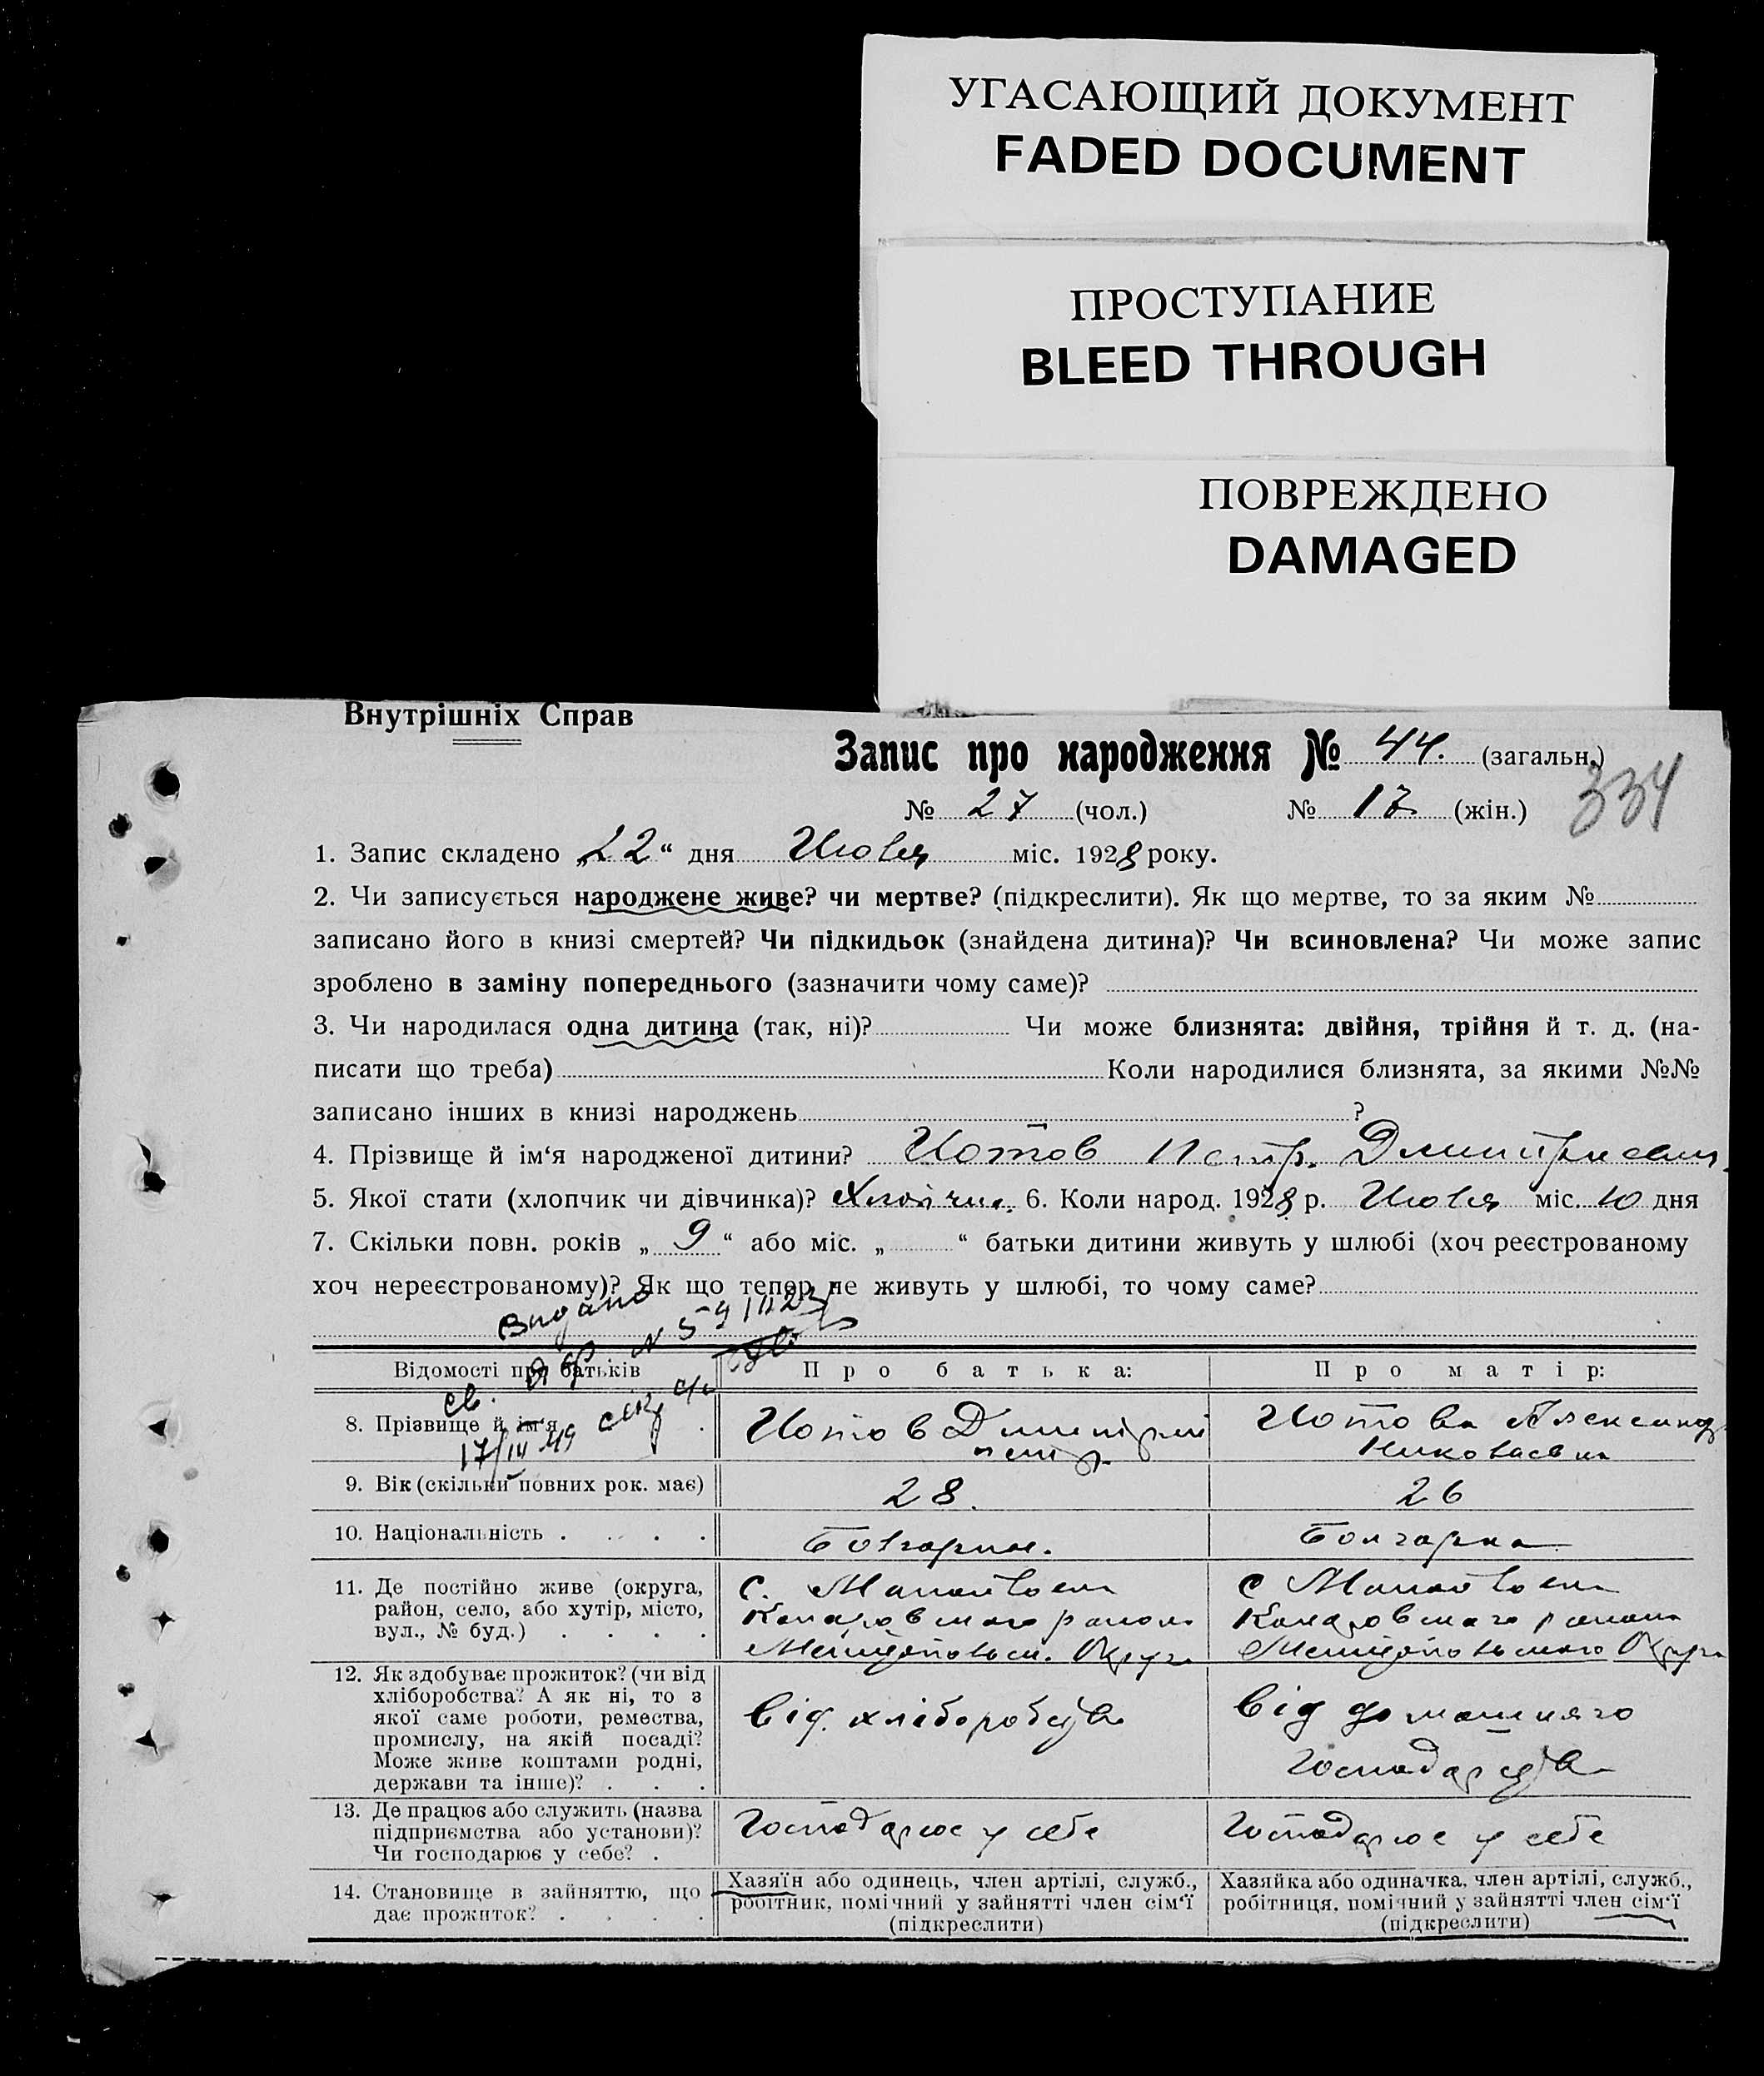 УГАСАЮЩИЙ ДОКУМЕНТ
FADED DOCUMENT
ПРОСТУПАНИЕ
BLEED THROUGH
ПОВРЕЖДЕНО
DAMAGED
Внутрішніх Справ
Запис про народження № 44. (загальн.)
334
№ 27 (чол.) № 17 (жін.)
1. Запис складено „22“ дня Июля міс. 1928 року.
2. Чи записується народжене живе? чи мертве? (підкреслити). Як що мертве, то за яким №
записано його в книзі смертей? Чи підкидьок (знайдена дитина)? Чи всиновлена? Чи може запис
зроблено в заміну попереднього (зазначити чому саме)?
3. Чи народилася одна дитина (так, ні)? Чи може близнята: двійня, трійня й т. д. (на-
писати що треба) Коли народилися близнята, за якими №№
записано інших в книзі народжень ?
4. Прізвище й ім‘я народженої дитини? Иотов Петр. Дмитриевич
5. Якої стати (хлопчик чи дівчинка)? Хлопчик. 6. Коли народ. 1928 р. Июля міс. 10 дня
7. Скільки повн. років „ 9 “ або міс. „ “ батьки дитини живуть у шлюбі (хоч реєстрованому
хоч нереєстрованому)? Як що тепер не живуть у шлюбі, то чому саме?
Видано
св.
17/III 49
Відомості про батьків Про батька: Про матір:
8. Прізвище й ім‘я . Иотов Дмитрий Петр. Иотова Александ. Николаевна
9. Вік (скільки повних рок. має) 28. 26
10. Національність . . . . Болгарин. Болгарка
11. Де постійно живе (округа,
район, село, або хутір, місто,
вул., № буд.) . . . .
с. Манойлоси
района
Мелітопольск. Округа
с Манойлоси
района
Мелитопольского Округа
12. Як здобуває прожиток? (чи від
хліборобства? А як ні, то з
якої саме роботи, ремества,
промислу, на якій посаді?
Може живе коштами родні,
держави та інше)? . . .
Від. хліборобства
Від домашняго
господарства
13. Де працює або служить (назва
підприємства або установи)?
Чи господарює у себе? .
Господарює у себе
Господарює у себе
14. Становище в зайняттю, що
дає прожиток? . . . .
Хазяїн або одинець, член артілі, служб.,
робітник, помічний у зайнятті член сім‘ї
(підкреслити)
Хазяйка або одиначка, член артілі, служб.,
робітниця, помічний у зайнятті член сім‘ї
(підкреслити)